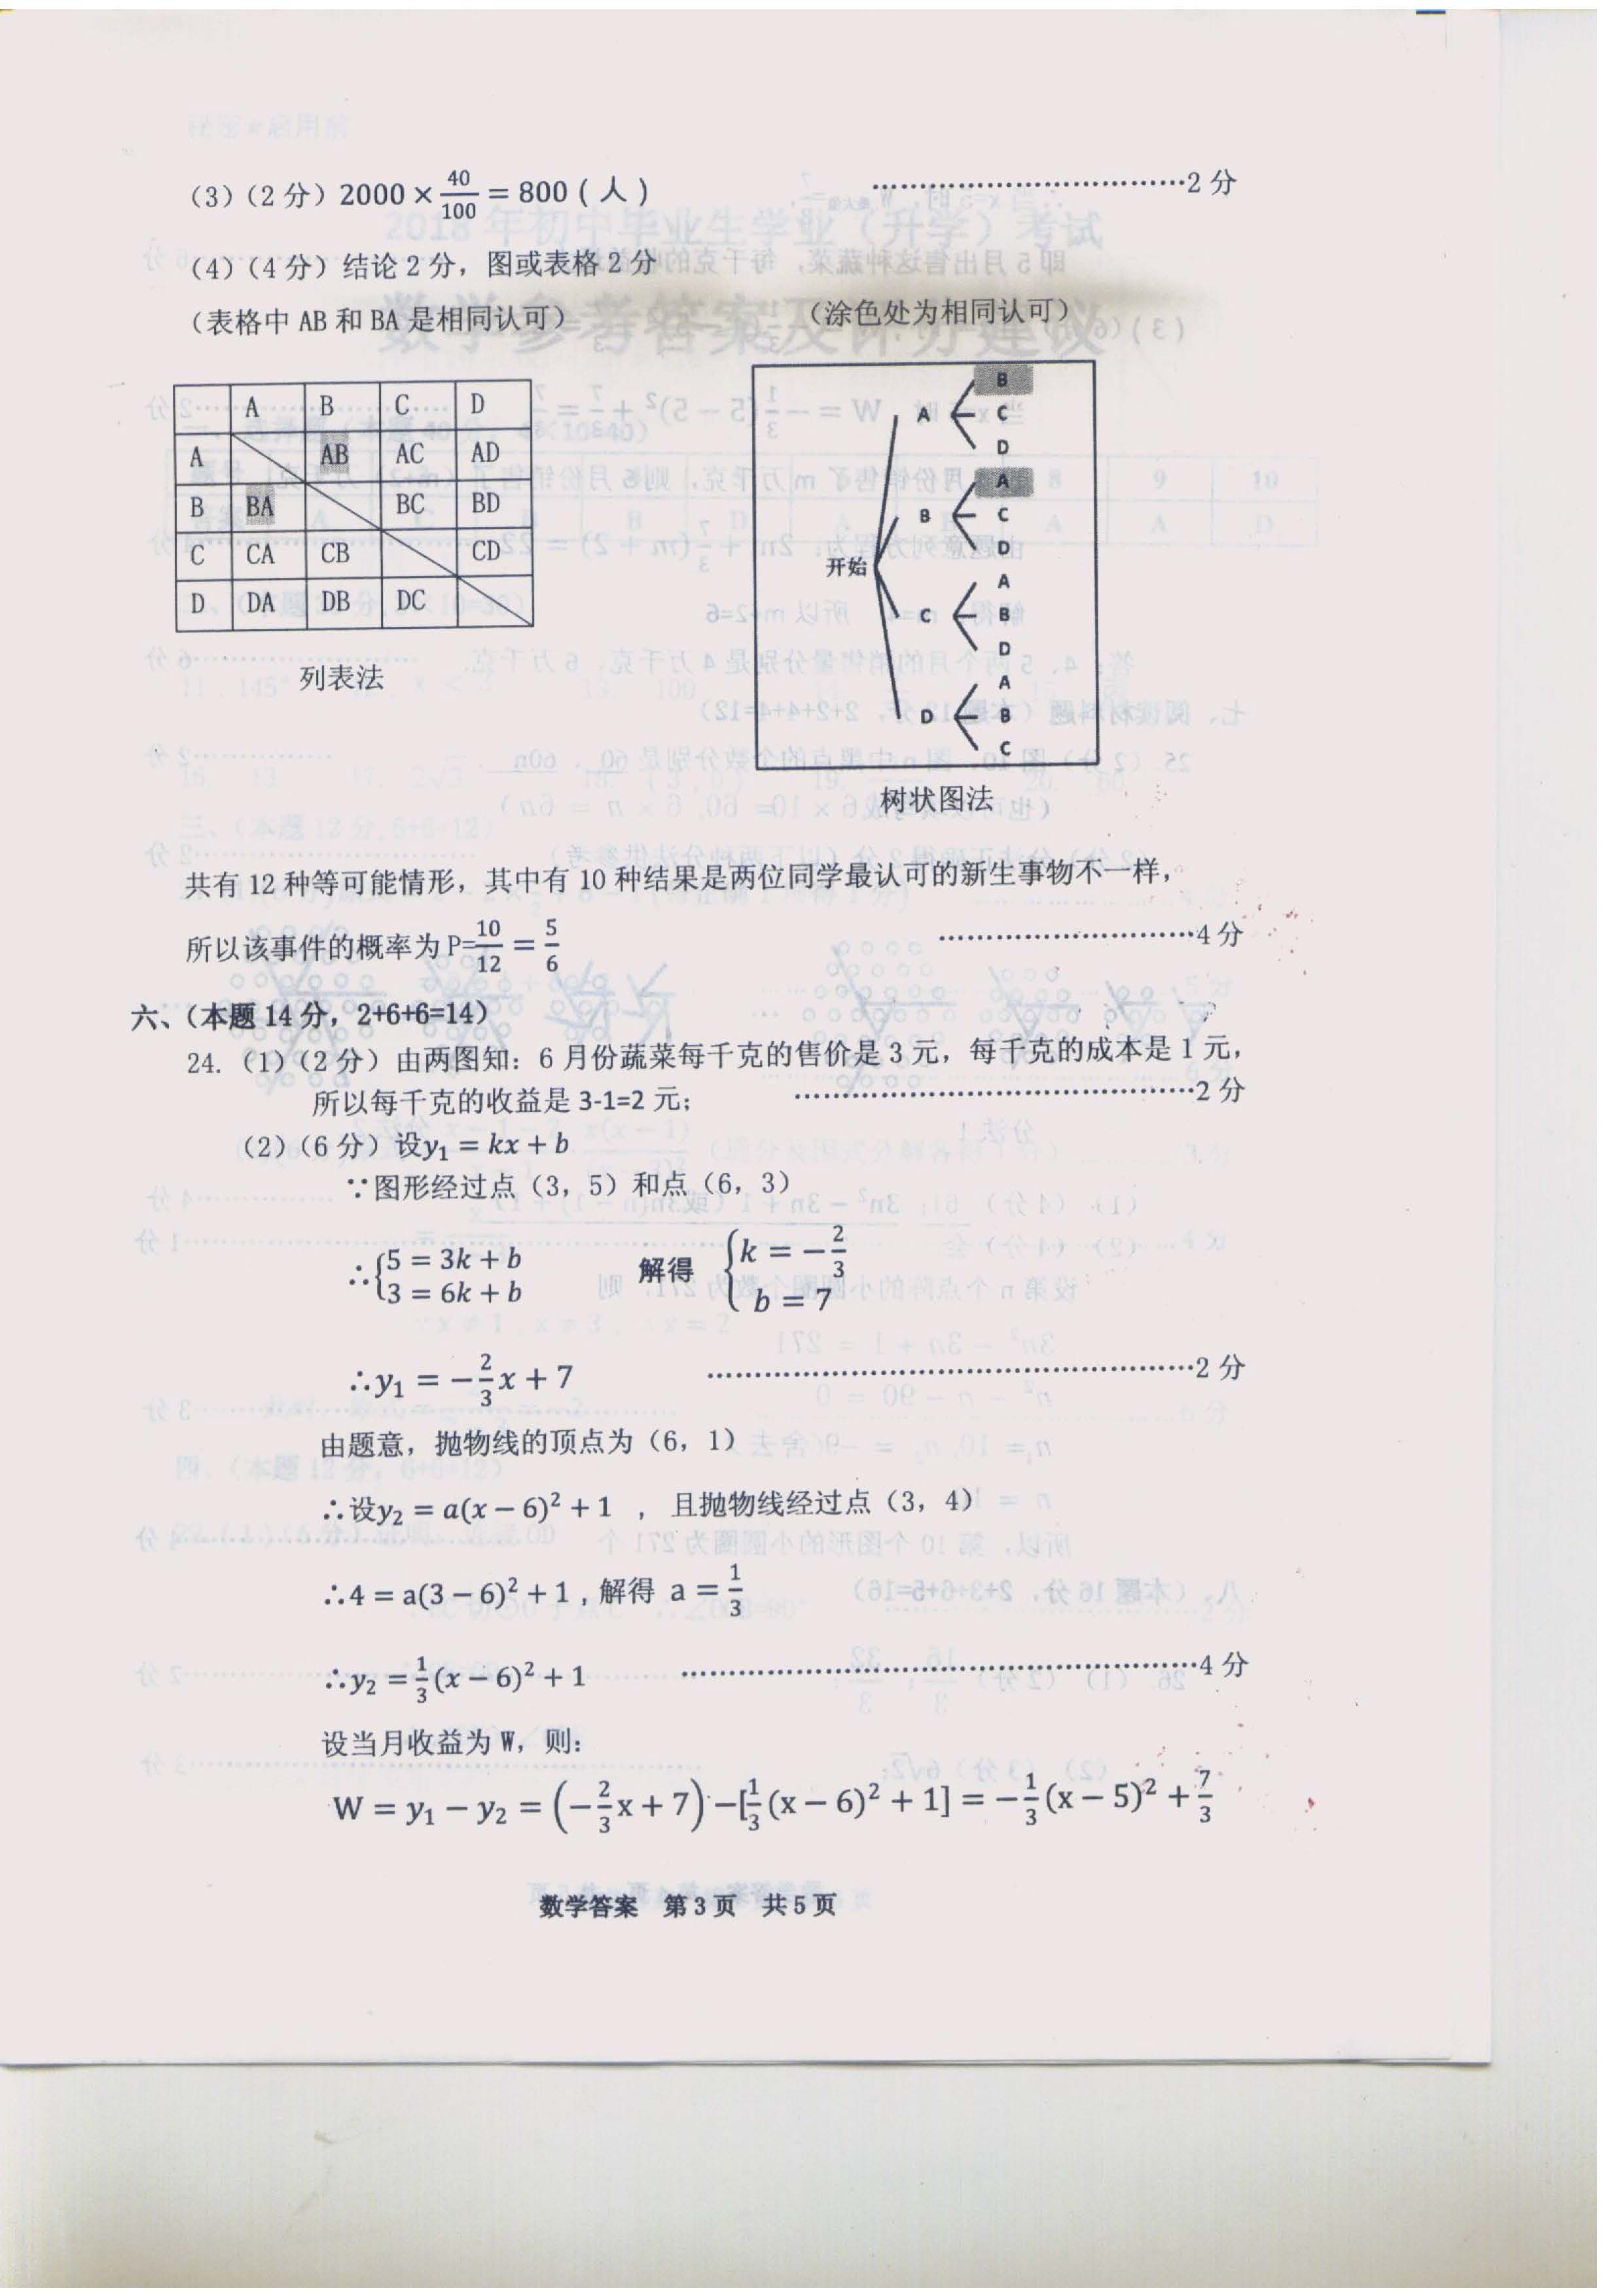 （3）（2 分）2000 × 40/100 = 800 ( 人 ) ……………………………2 分
（4）（4 分）结论 2 分，图或表格 2 分
（表格中 AB 和 BA 是相同认可）
（涂色处为相同认可）
A B C D
A AB AC AD
B BA BC BD
C CA CB CD
D DA DB DC
列表法
开始
A B C D
B A C D
C A B D
D A B C
树状图法
共有 12 种等可能情形，其中有 10 种结果是两位同学最认可的新生事物不一样，
所以该事件的概率为 P=10/12 = 5/6 ………………………4 分
六、（本题 14 分，2+6+6=14）
24.（1）（2 分）由两图知：6 月份蔬菜每千克的售价是 3 元，每千克的成本是 1 元，
所以每千克的收益是 3-1=2 元； ……………………………………2 分
（2）（6 分）设y₁ = kx + b
∵图形经过点（3，5）和点（6，3）
∴{5 = 3k + b 3 = 6k + b 解得 {k = −2/3 b = 7
∴y₁ = −2/3x + 7 ……………………………………………2 分
由题意，抛物线的顶点为（6，1）
∴设y₂ = a(x − 6)² + 1 ， 且抛物线经过点（3，4）
∴4 = a(3 − 6)² + 1 , 解得 a = 1/3
∴y₂ = 1/3(x − 6)² + 1 ………………………………………………4 分
设当月收益为 W，则：
W = y₁ − y₂ = (−2/3x + 7) −[1/3(x − 6)² + 1] = −1/3(x − 5)² + 7/3
数学答案 第 3 页 共 5 页